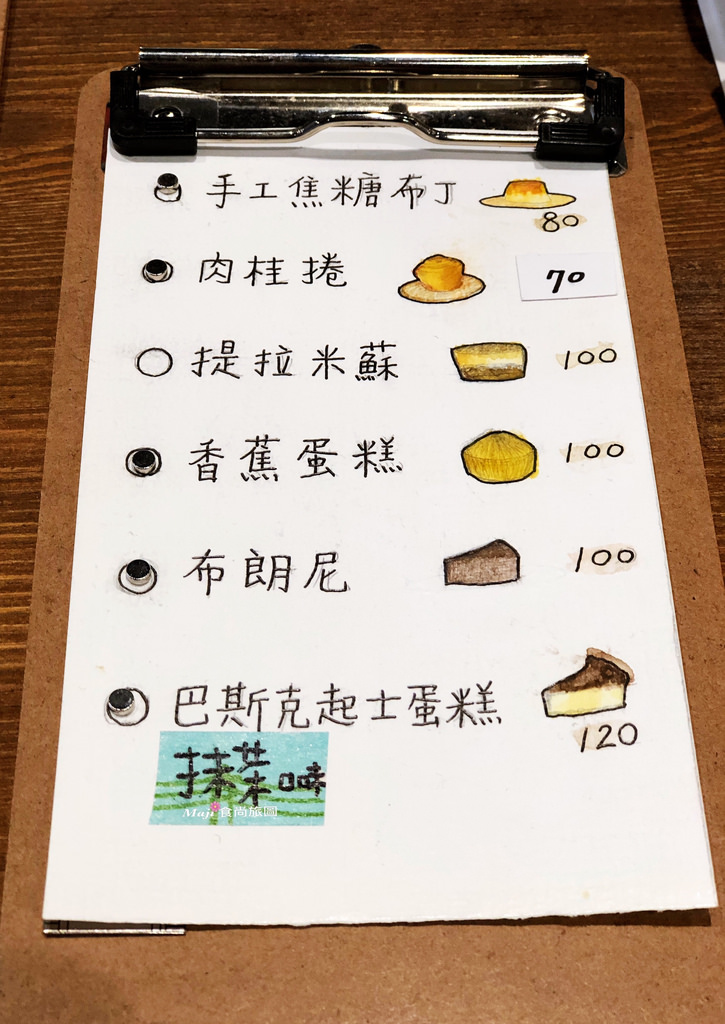 手工焦糖布丁
80
肉桂捲 70
提拉米蘇 100
香蕉蛋糕 100
布朗尼 100
巴斯克起士蛋糕
120
抹茶口味
Maji 食尚旅圖